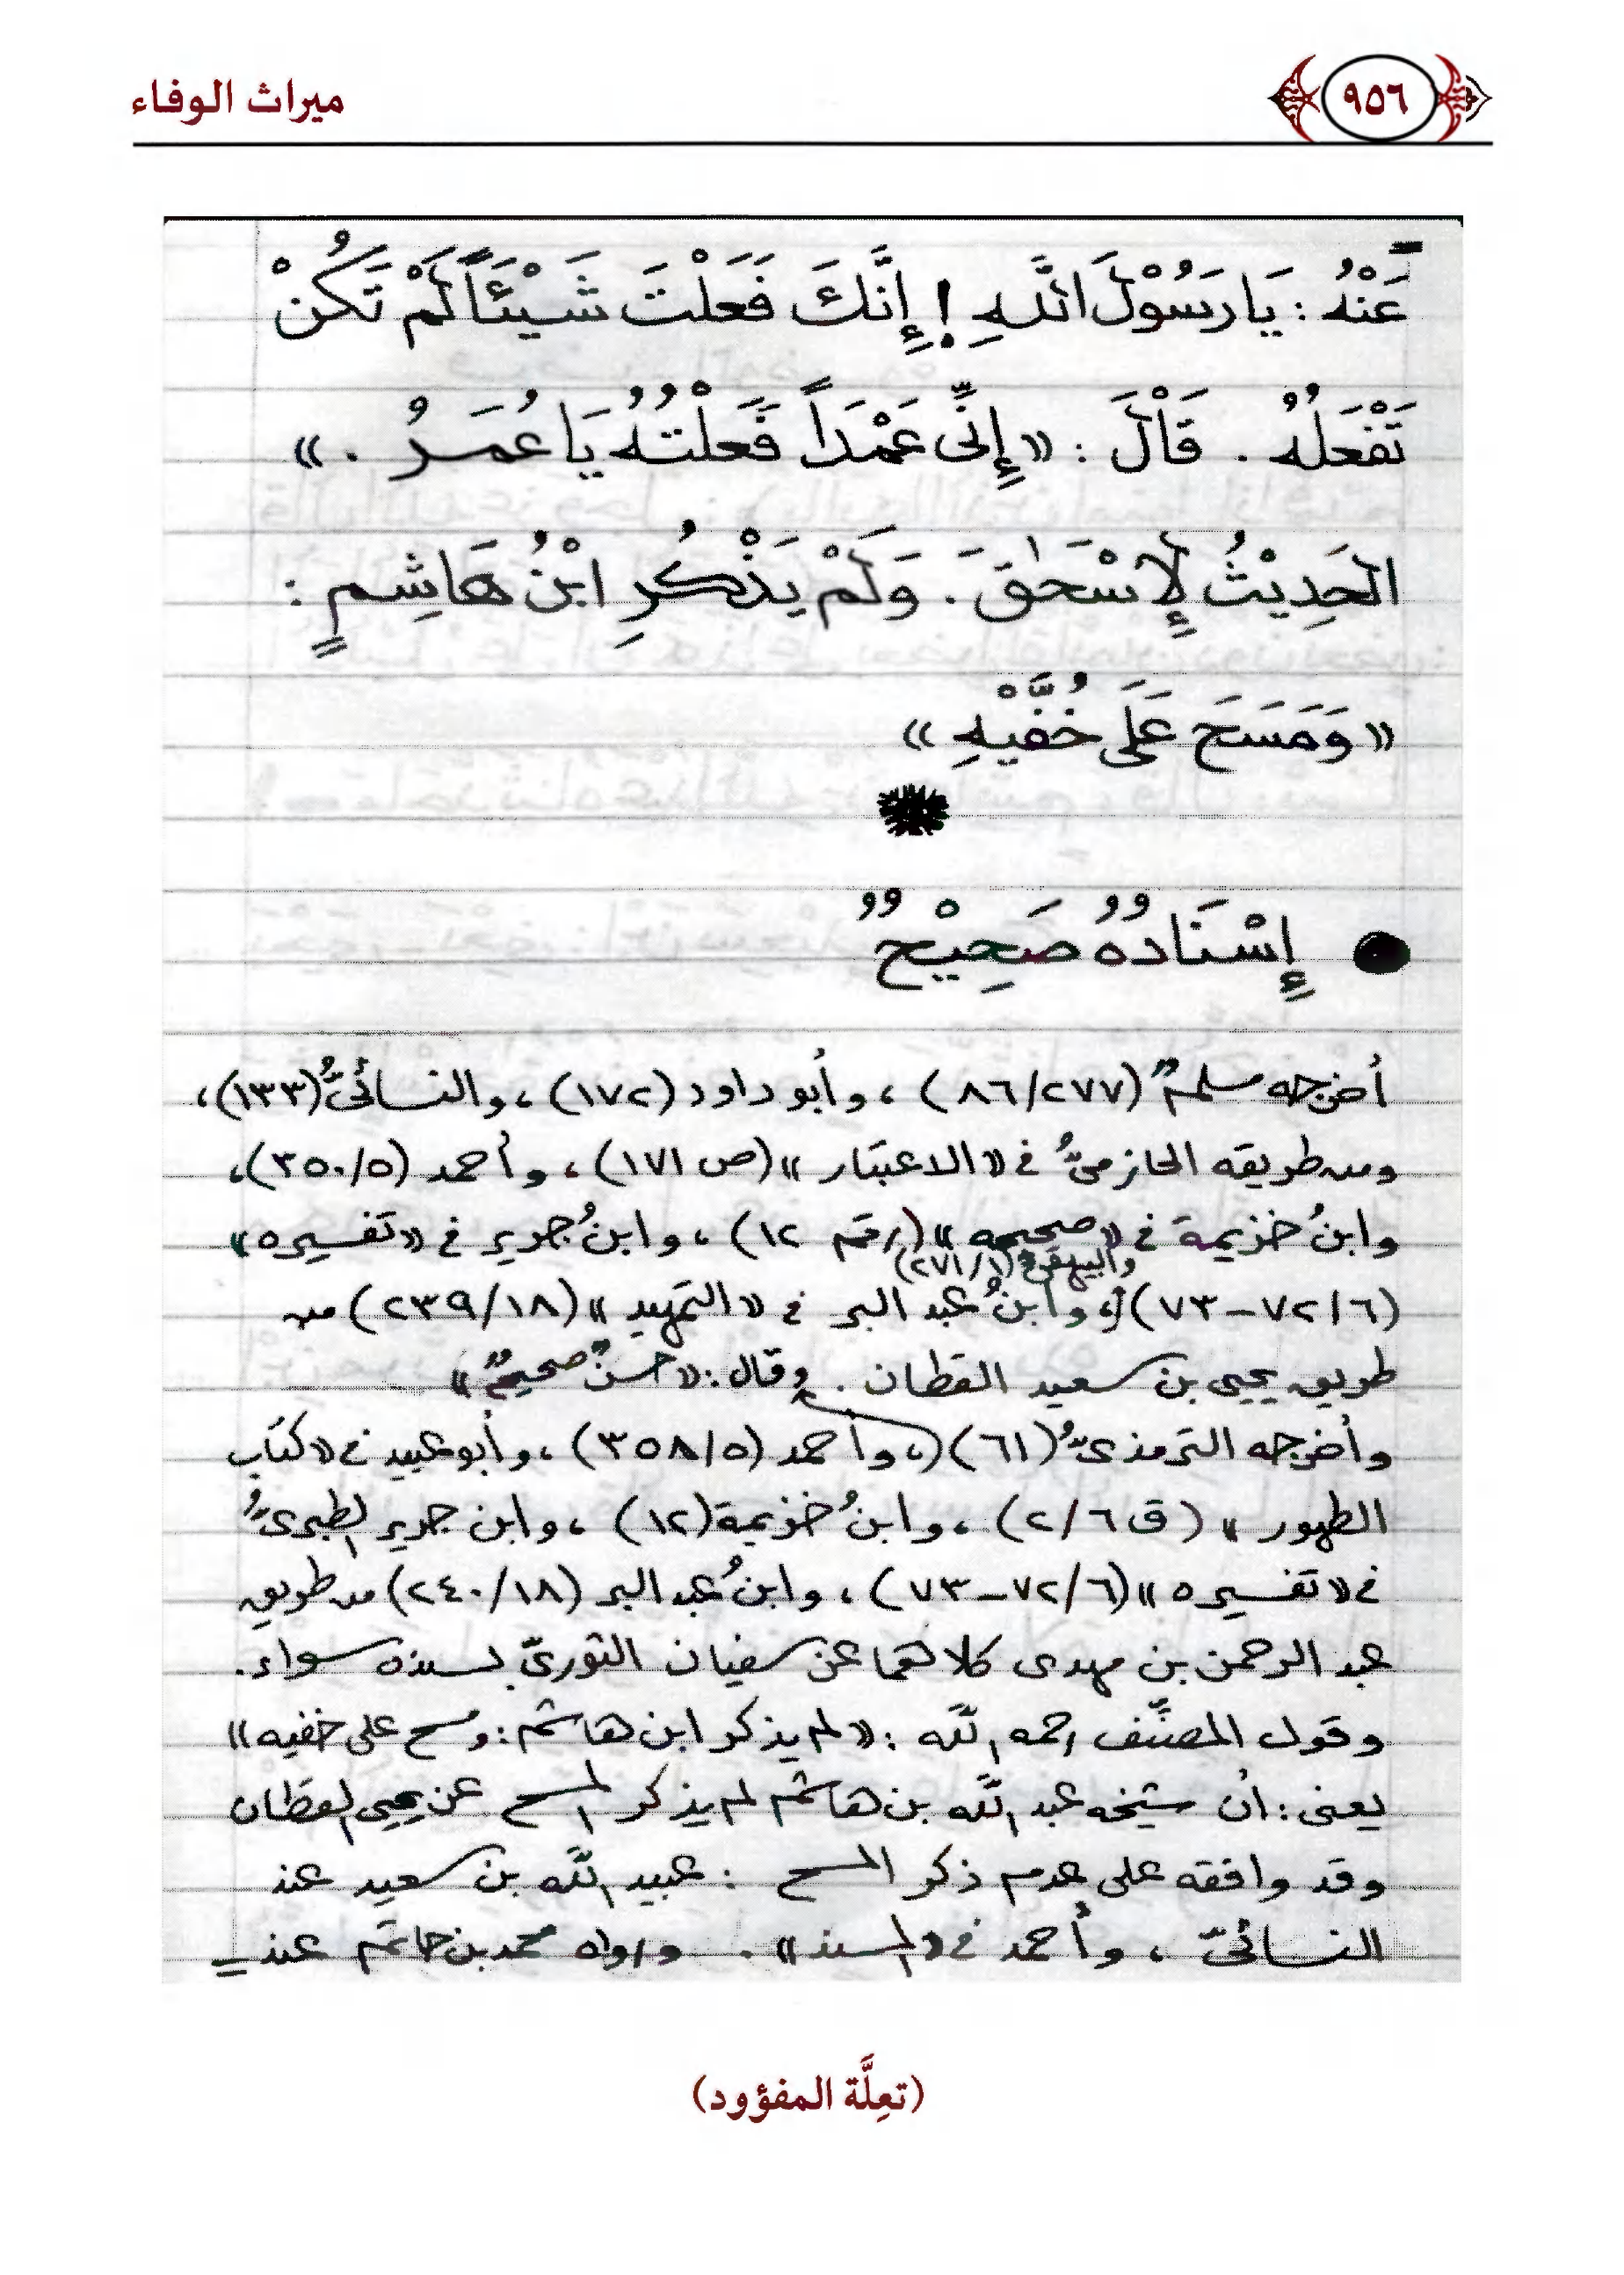 ميراث الوفاء
٩٥٦
عَنْهُ : يَا رَسُوْلَ اللهِ ! إِنَّكَ فَعَلْتَ شَيْئَاً لَمْ تَكُنْ
تَفْعَلُهُ . قَالَ : « إِنِّي عَمْدَاً فَعَلْتُهُ يَا عُمَرُ . »
الحَدِيْثُ لِإِسْحٰقَ . وَلَمْ يَذْكُرِ ابْنُ هَاشِمٍ :
« وَمَسَحَ عَلَى خُفَّيْهِ »
● إِسْنَادُهُ صَحِيْحٌ
أخرجه مسلمٌ (٨٦/٢٧٧) ، وأبو داود (١٧٢) ، والنسائىُّ (١٣٣) ،
ومن طريقه الحازمىُّ فى « الاعتبار » (ص ١٧١) ، وأحمد (٣٥٠/٥) ،
وابنُ خزيمة فى « صحيحه » (رقم ١٢) ، وابنُ جرير فى « تفسيره »
والبيهقىُّ (٢٧١/١)
(٧٢/٦ – ٧٣) ، وابنُ عبد البر فى « التمهيد » (٢٣٩/١٨) من
طريق يحيى بن سعيد القطان . وقال : « حسنٌ صحيحٌ »
وأخرجه الترمذىُّ (٦١) ، وأحمد (٣٥٨/٥) ، وأبو عبيد فى « كتاب
الطهور » (ق ٢/٦) ، وابنُ خزيمة (١٢) ، وابن جرير الطبرىُّ
فى « تفسيره » (٧٢/٦ – ٧٣) ، وابنُ عبد البر (٢٤٠/١٨) من طريق
عبد الرحمن بن مهدى كلاهما عن سفيان الثورىّ بسنده سواء .
وقول المصنِّف رحمه الله : « لم يذكر ابن هاشم : ومسح على خفيه »
يعنى : أن شيخه عبد الله بن هاشم لم يذكر المسح عن يحيى القطان
وقد وافقه على عدم ذكر المسح : عبيد الله بن سعيد عند
النسائىّ ، وأحمد فى « المسند » . ورواه محمد بن حاتم عند
(تعِلَّة المفؤود)